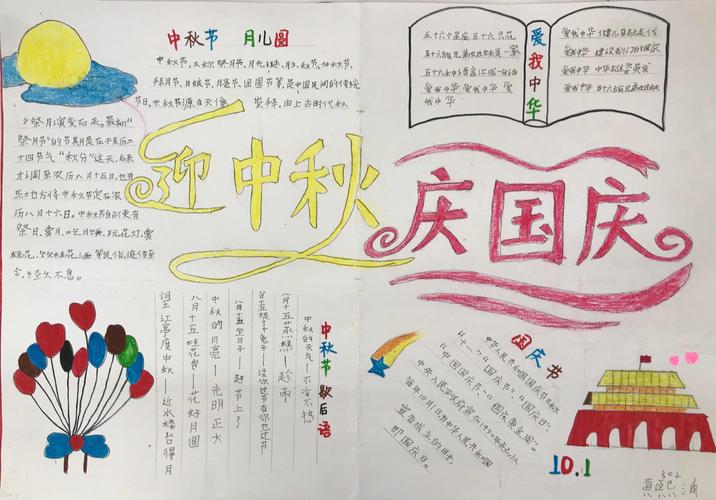 中秋节 月儿圆
中秋节，又称祭月节、月光诞、月夕、秋节、仲秋节、
拜月节、月娘节、月亮节、团圆节等，是中国民间的传统
节日。中秋节源自天像 崇拜，由上古时代秋
夕祭月演变而来。最初“
祭月节”的节期是在干支历二
十四节气“秋分”这天，后来
才调至农历八月十五日，也有
些地方将中秋节定在农
历八月十六日。中秋节自古便有
祭月、赏月、吃月饼、玩花灯、赏
桂花、饮桂花酒等民俗，流传至
今，经久不息。
迎中秋
爱我中华
五十六个星座五十六支花
五十六族兄弟姐妹是一家
五十六种语言汇成一句话
爱我中华爱我中华爱
我中华
爱我中华
爱我中华
爱我中华
庆国庆
中秋节歇后语
中秋的天气——不冷不热
八月十五蒸糕——趁雨
八月十五坐月子——赶节上了
中秋的月亮——光明正大
八月十五桂花香——花好月圆
望江亭度中秋——近水楼台得月
国庆节
中华人民共和国国庆节又称
“十一”、“国庆节”、“国庆日”、
“中国国庆节”、
中央人民政府宣布1950年起，以
每年10月1日，为中华人民共和国
宣告成立的日子，
即国庆日。
10.1
302